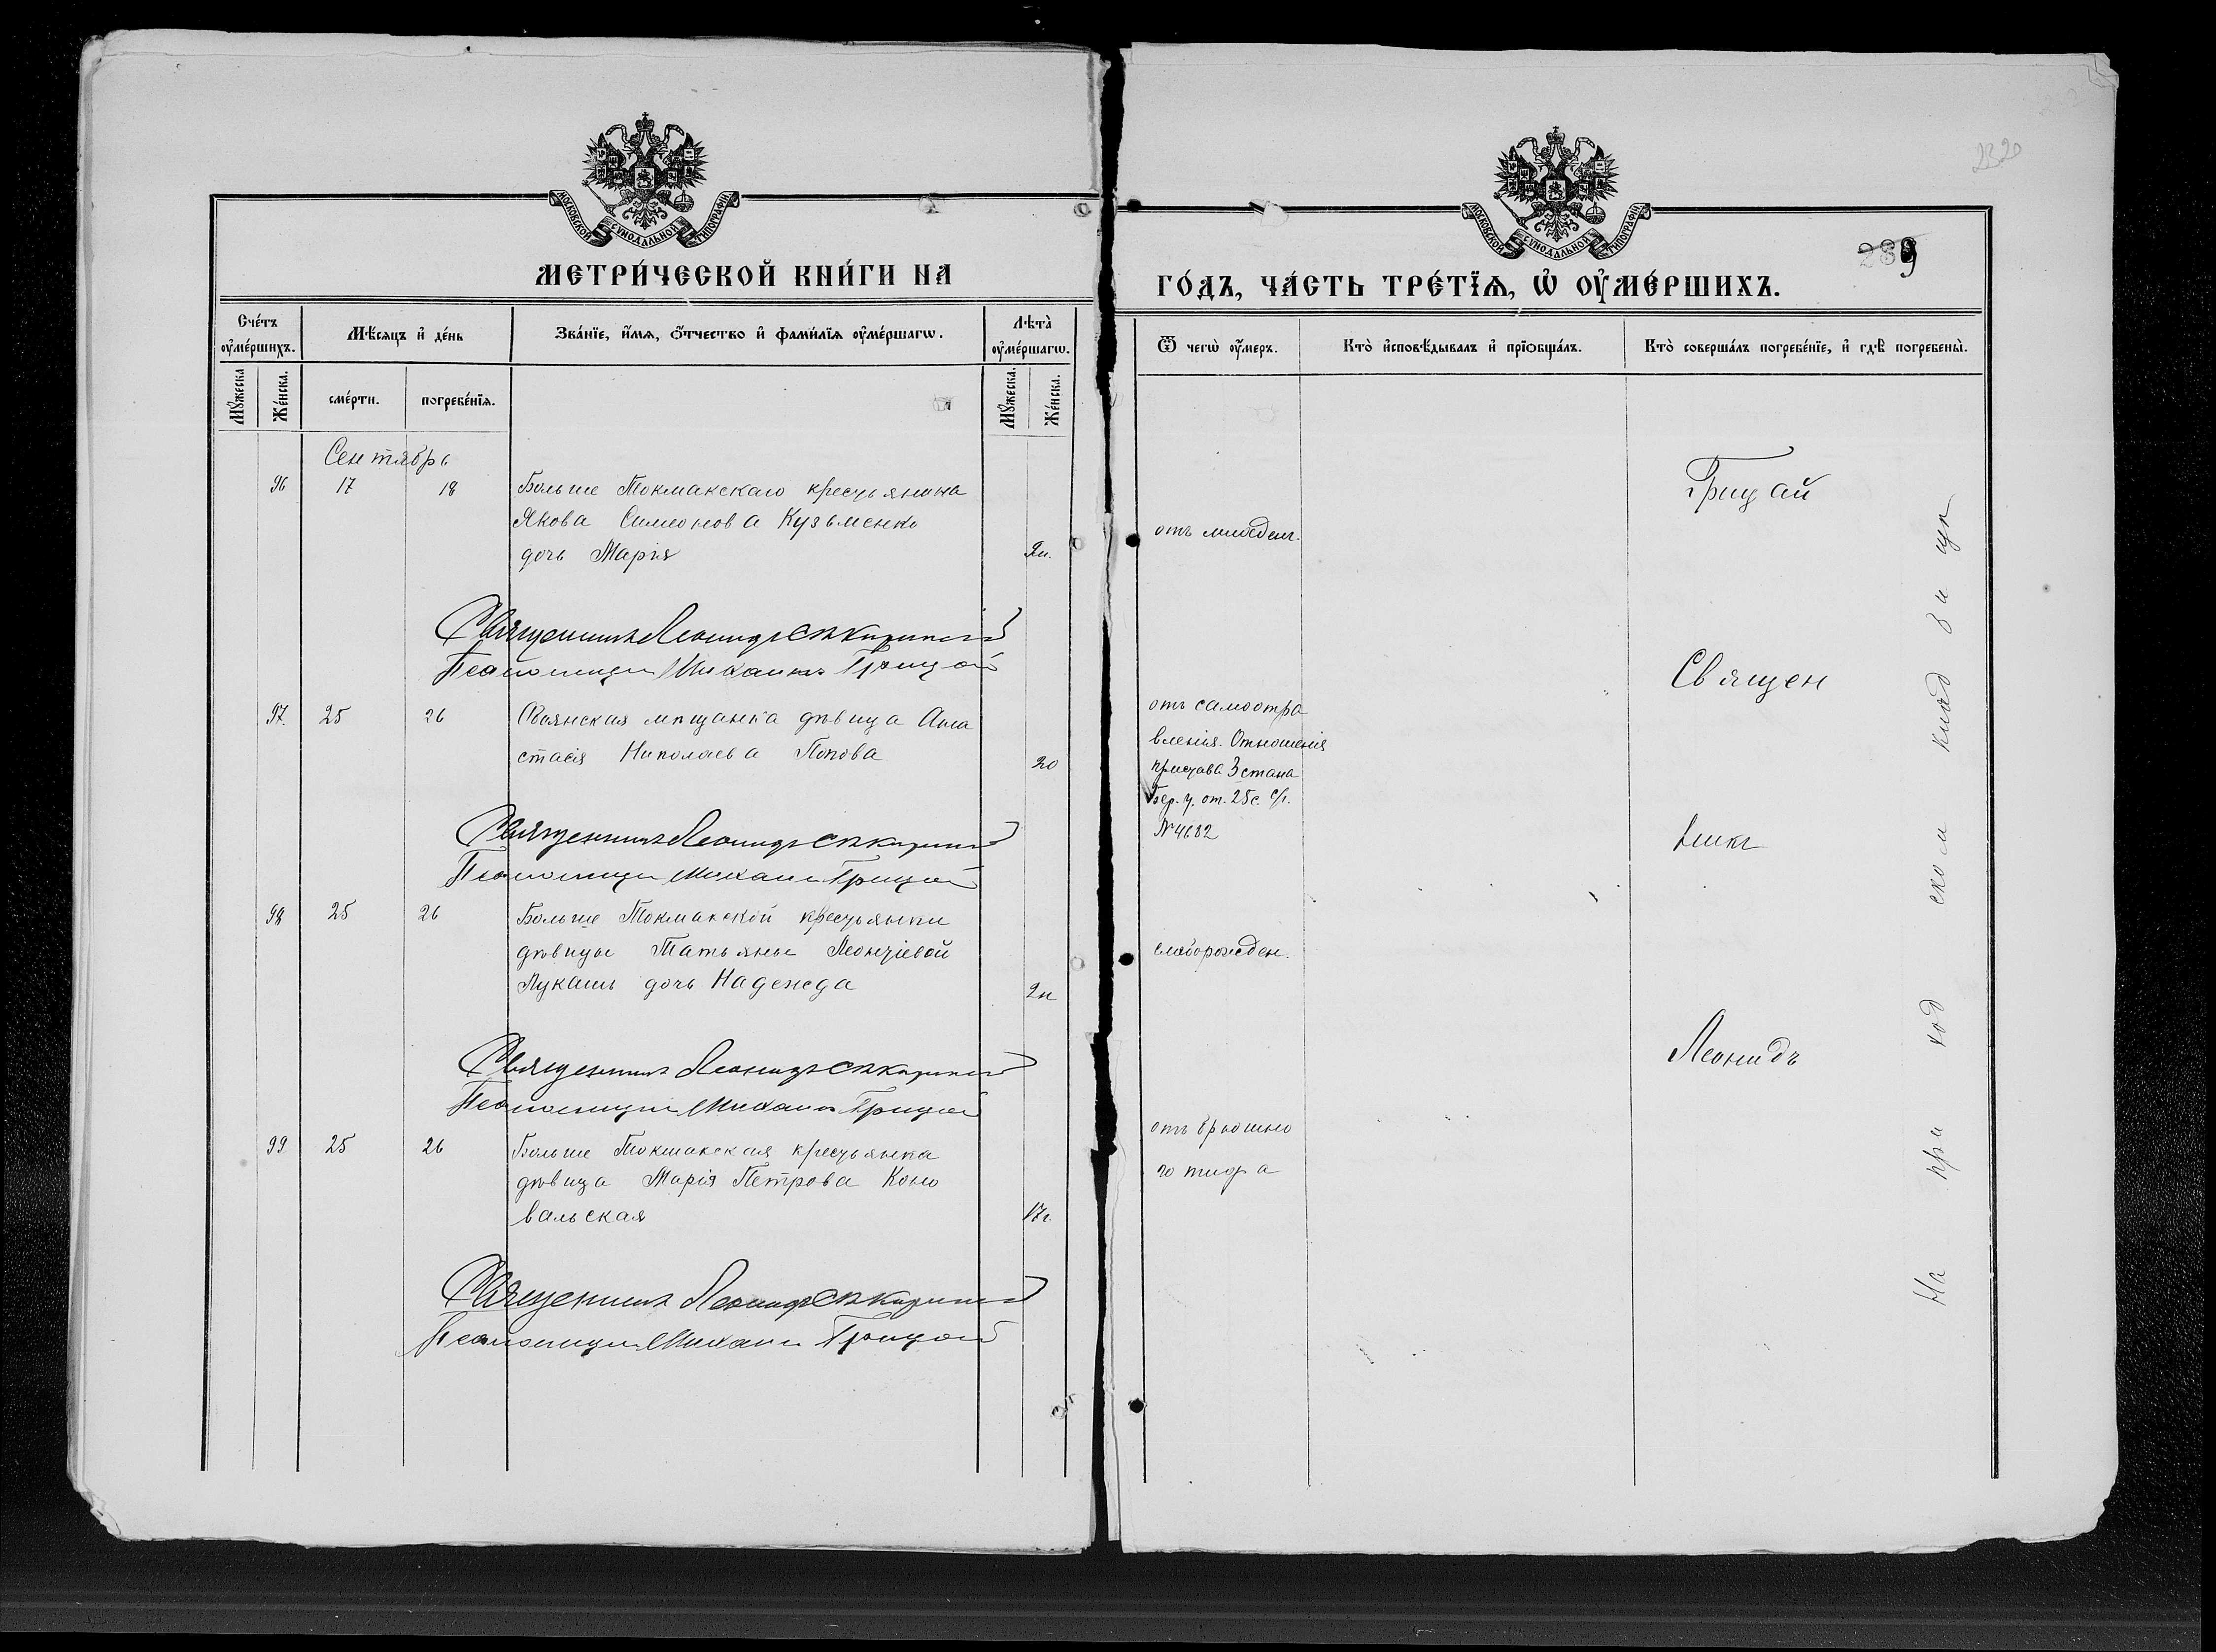 МОСКОВСКОЙ СѴНОДАЛЬНОЙ ТИПОГРАФІИ
МЕТРИ́ЧЕСКОЙ КНИ́ГИ НА
Сче́тъ ᲂу҆ме́ршихъ.
Мѣ́сяцъ и҆ де́нь
Зва́нїе, и҆́мѧ, ѻ҆́тчество и҆ фами́лїѧ ᲂу҆ме́ршагѡ.
Лѣта̀ ᲂу҆ме́ршагѡ.
Мꙋ́жеска
Же́нска.
сме́рти.
погребе́нїѧ.
Мꙋ́жеска.
Же́нска.
Сентябрь
96 17 18 Больше Токмакскаго крестьянина
Якова Симеонова Кузьменко
дочь Марія 2н.
Священникъ Леонидъ
Псаломщикъ Михаилъ Грицай
97. 25 26 мѣщанка дѣвица Ана
стасія Николаева Попова 20
Священникъ Леонидъ
Псаломщикъ Михаилъ Грицай
98 25 26 Больше Токмакской крестьянки
дѣвицы Татьяны Леонтіевой
Лукашъ дочь Надежда 2н
Священникъ Леонидъ
Псаломщикъ Михаилъ Грицай
99 25 26 Больше Токмакская крестьянка
дѣвица Марія Петрова Коно
вальская 17г.
Священникъ Леонидъ
Псаломщикъ Михаилъ Грицай
МОСКОВСКОЙ СѴНОДАЛЬНОЙ ТИПОГРАФІИ
239
ГО́ДЪ, ЧА́СТЬ ТРЕ́ТЇѦ, Ѡ҆ ОУ҆МЕ́РШИХЪ.
Ѿ чегѡ̀ ᲂу҆́меръ.
Кто̀ и҆сповѣ́дывалъ и҆ прїѻбща́лъ.
Кто̀ соверша́лъ погребе́нїе, и҆ гдѣ̀ погребены̀.
отъ младен.
отъ самоотра
вленія. Отношенія
пристава 3 стана
Бер. у. от. 25 с. с/г.
№ 4682
слаборожден.
отъ брюшно
го тифа
Грицай
Священ
никъ
Леонидъ
На при ход ском клад б и щѣ